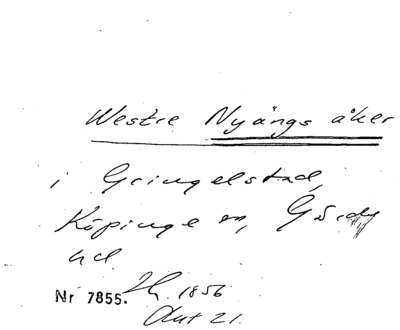 Westre Nyängs åker
i Gringelstad,
Köpinge sn, Gärds
hd
Nr 7855. Jb. 1856
Akt 21.